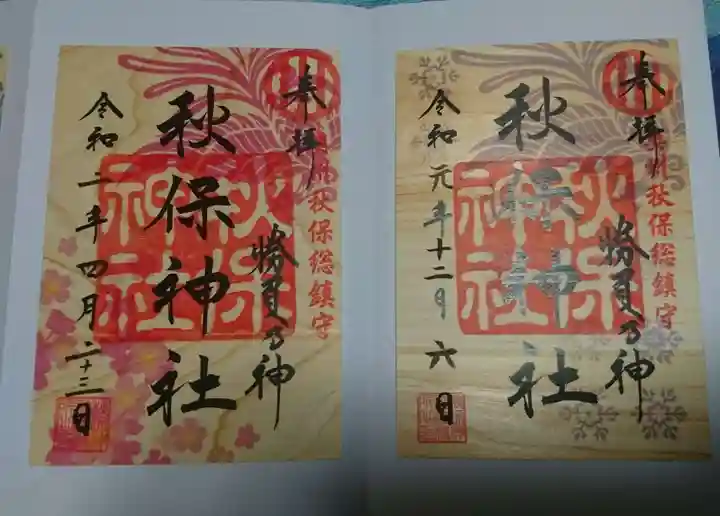 奉拝
奥州秋保総鎮守
勝負の神
秋保神社
秋保神社
令和二年四月二十三日
奉拝
奥州秋保総鎮守
勝負の神
秋保神社
秋保神社
令和元年十二月六日